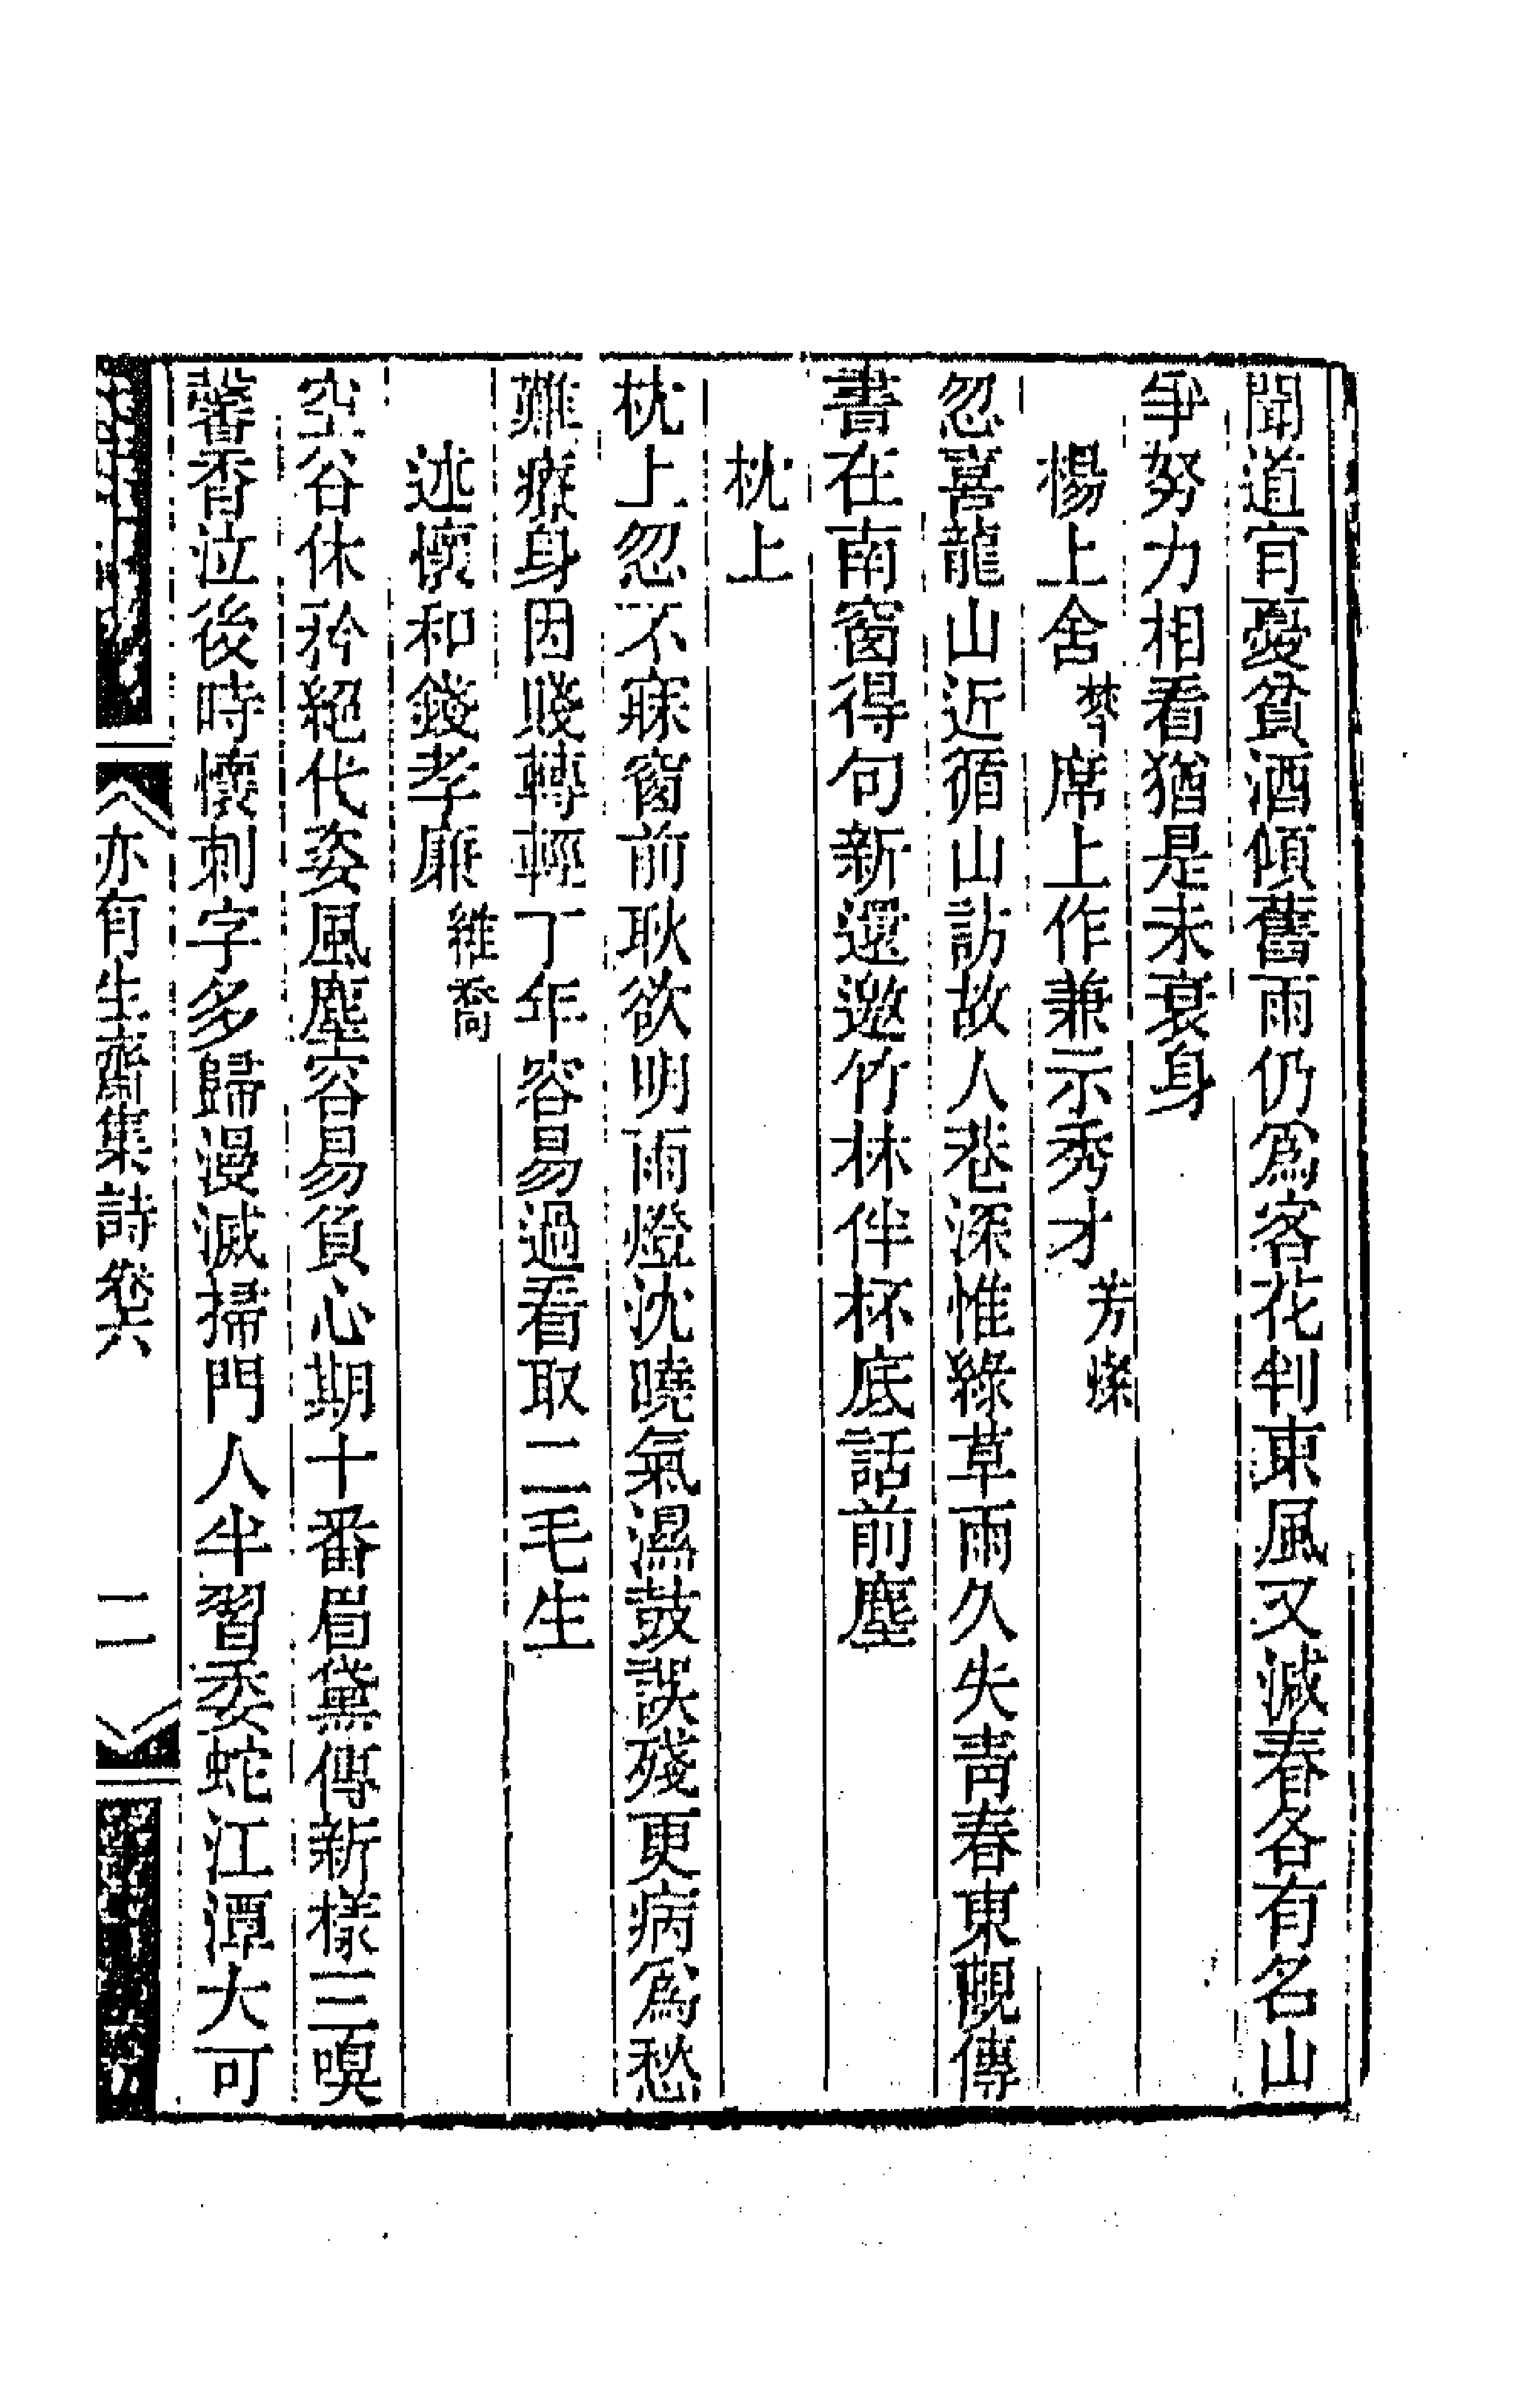 聞道宵憂貧酒傾舊雨仍爲客花判東風又減春各有名山
爭努力相看猶是未衰身
楊上舍夢席上作兼示秀才芳燦
忽喜龍山近循山訪故人巷深惟綠草雨久失靑春東觀傳
書在南窗得句新還邀竹林伴杯底話前塵
枕上
枕上忽不寐窗前耿欲明雨燈沈曉氣濕鼓誤殘更病爲愁
難療身因賤轉輕丁年容易過看取二毛生
述懷和錢孝廉維喬
空谷休矜絕代姿風塵容易負心期十番眉黛傳新樣三嗅
馨香泣後時懷刺字多歸漫滅掃門人半習委蛇江潭大可
亦有生齋集詩卷六
二